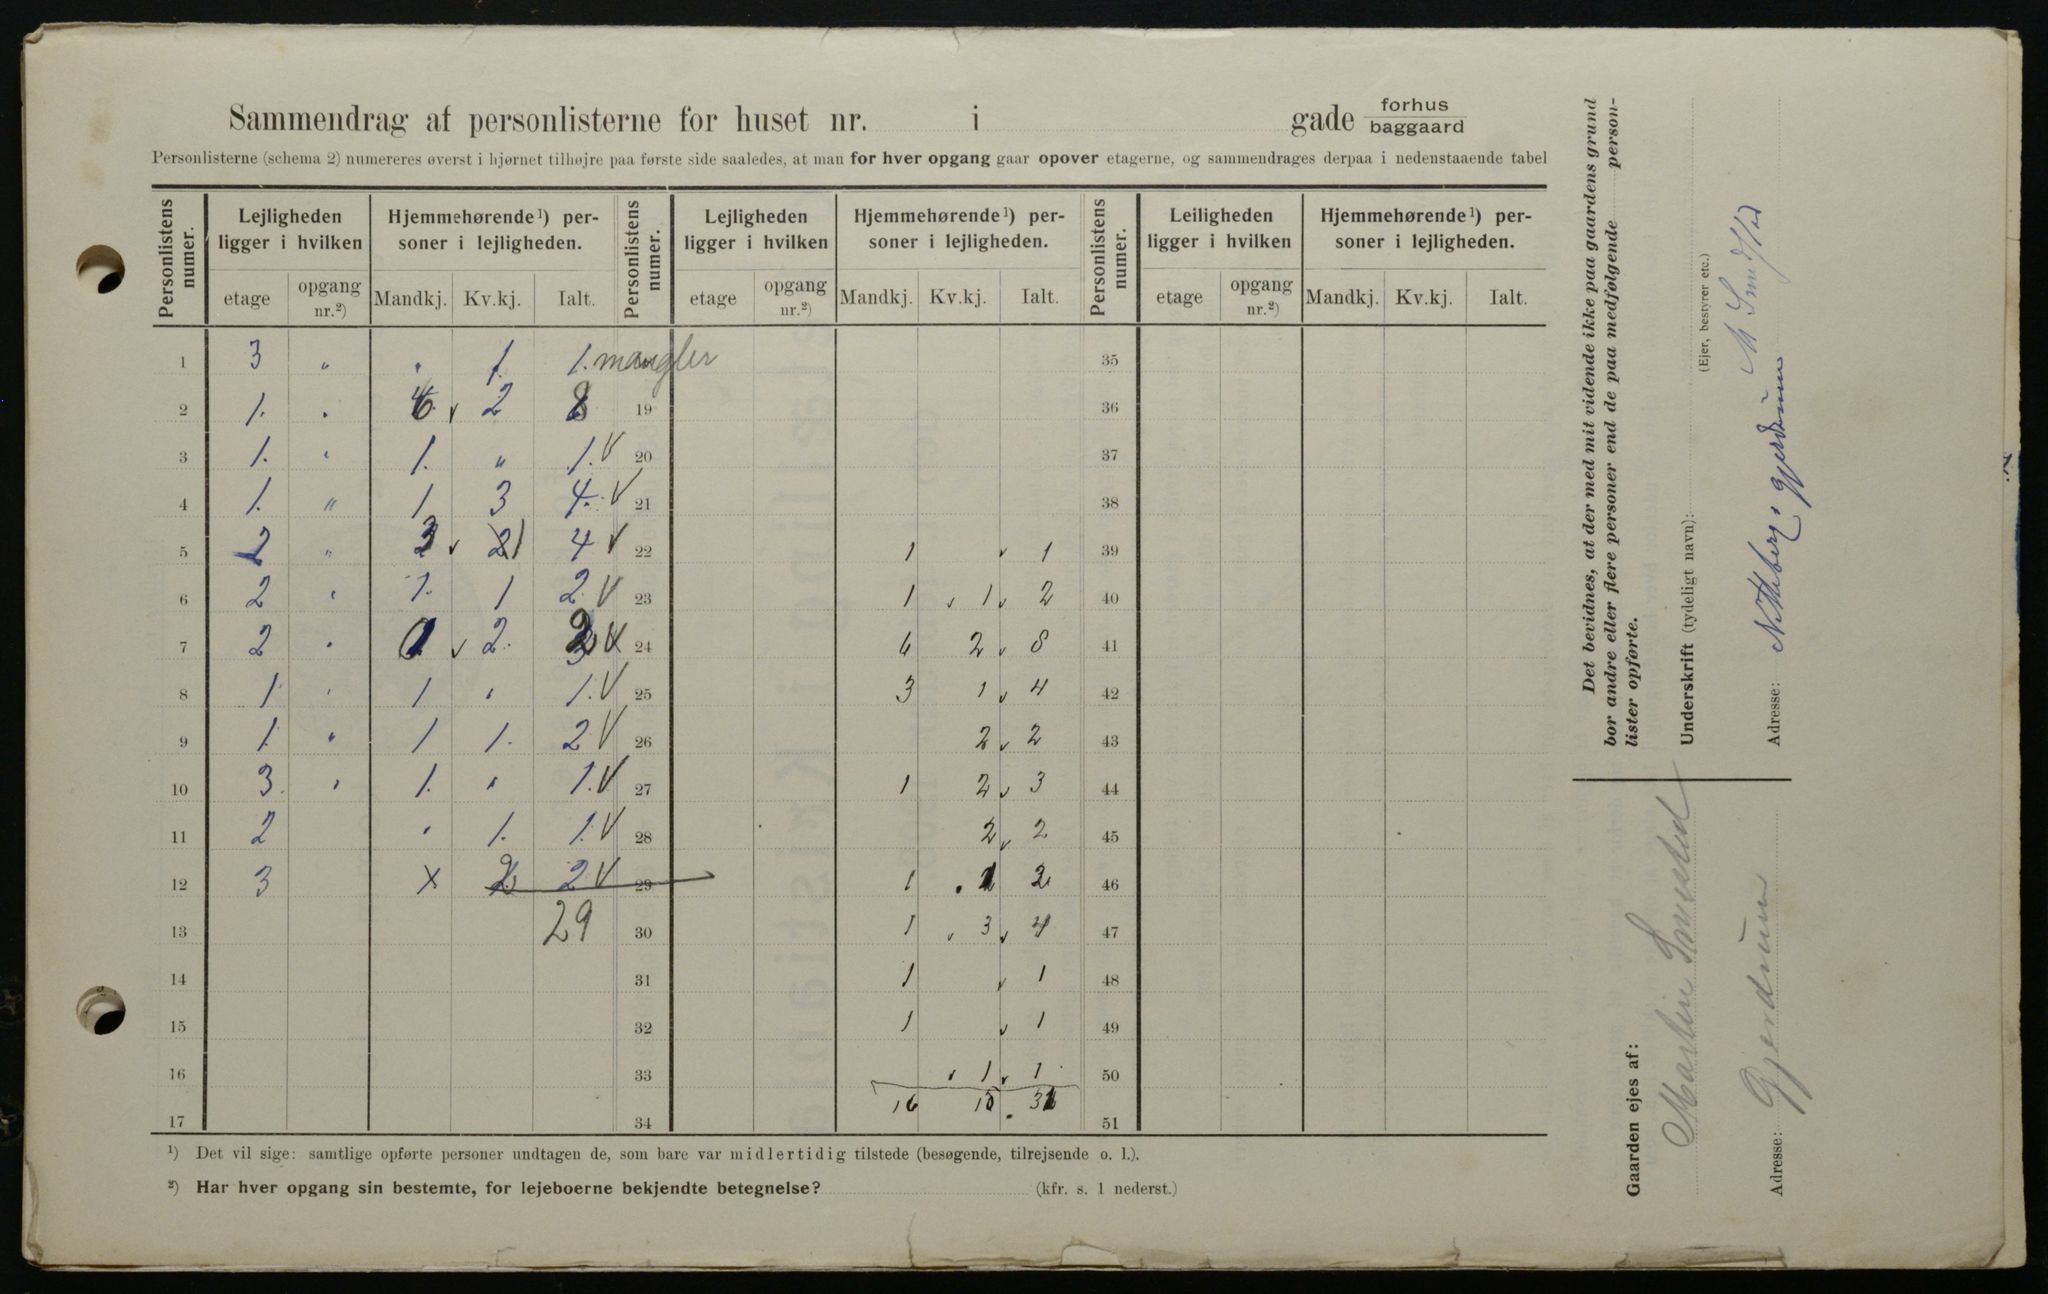 Sammendrag af personlisterne for huset nr. i gade forhus baggaard
Personlisterne (schema 2) numereres øverst i hjørnet tilhøjre paa første side saaledes, at man for hver opgang gaar opover etagerne, og sammendrages derpaa i nedenstaaende tabel
Personlistens numer. Lejligheden ligger i hvilken Hjemmehørende ¹) personer i lejligheden. Personlistens numer. Lejligheden ligger i hvilken Hjemmehørende ¹) personer i lejligheden. Personlistens numer. Leiligheden ligger i hvilken Hjemmehørende ¹) personer i lejligheden.
etage opgang nr.²) Mandkj. Kv.kj. Ialt. etage opgang nr.²) Mandkj. Kv.kj. Ialt. etage opgang nr.²) Mandkj. Kv.kj. Ialt.
1 3 " " 1. 1. mangler 35
2 1. " 6 v 2 8 19 36
3 1. " 1. " 1. v 20 37
4 1. " 1 3 4. v 21 38
5 2 " 3 v 1 4 v 22 1 v 1 39
6 2 " 1. 1 2 v 23 1 v 1 v 2 40
7 2 " 0 v 2. 2 v 24 6 2 v 8 41
8 1. " 1 " 1. v 25 3 1 v 4 42
9 1. " 1 1. 2 v 26 2 v 2 43
10 3 " 1. " 1. v 27 1 2 v 3 44
11 2 " 1. 1. v 28 2 v 2 45
12 3 x 2 2 v 29 1 . 1 2 46
13 29 30 1 v 3 v 4 47
14 31 1 v 1 48
15 32 1 v 1 49
16 33 v 1 v 1 50
17 34 16 15 . 31 51
¹) Det vil sige: samtlige opførte personer undtagen de, som bare var midlertidig tilstede (besøgende, tilrejsende o. l.).
²) Har hver opgang sin bestemte, for lejeboerne bekjendte betegnelse? (kfr. s. 1 nederst.)
Det bevidnes, at der med mit vidende ikke paa gaardens grund
bor andre eller flere personer end de paa medfølgende personlister opførte.
Underskrift (tydeligt navn): M Smestad
(Ejer, bestyrer etc.)
Adresse: Gjerdrum
Gaarden ejes af: Martin Smestad
Adresse: Gjerdrum